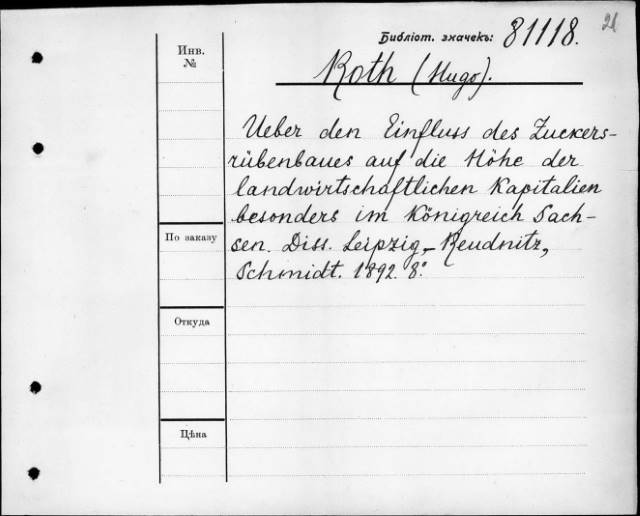 21
Библіот. значекъ: 81118.
Инв.
№
Roth (Hugo).
Ueber den Einfluss des Zuckers-
rübenbaues auf die Höhe der
landwirtschaftlichen Kapitalien
besonders im Königreich Sach-
По заказу
sen. Diss. Leipzig-Reudnitz,
Schmidt. 1892. 8.°
Откуда
Цѣна